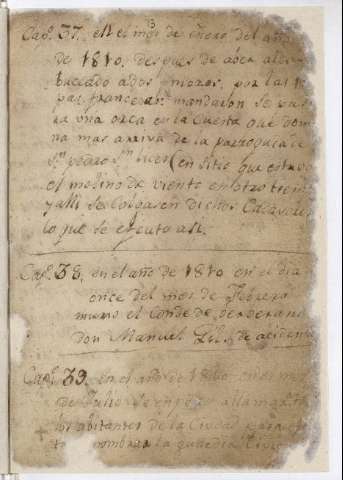 13
Cap. 37. en el mes de enero del año
de 1810. despues de aber al
buceado a dos mozos, por las tro
pas francesas mandaron se pusie
ra una orca en la cuesta que
mas arriva de la parroquia de
Sn. pedro en sitio que estuvo
el molino de viento en otro tiem
y alli se colgasen dichos Cadavares
lo que se ejecuto asi.
Cap. 38. en el año de 1810 en el dia
once del mes de Febrero
murio el Conde de
don Manuel de acidente
Cap. 39. en el año de 1810 en el mes
de Julio se enpezo a llamar
los abitantes de la Ciudad para
nombrar la guardia Civic